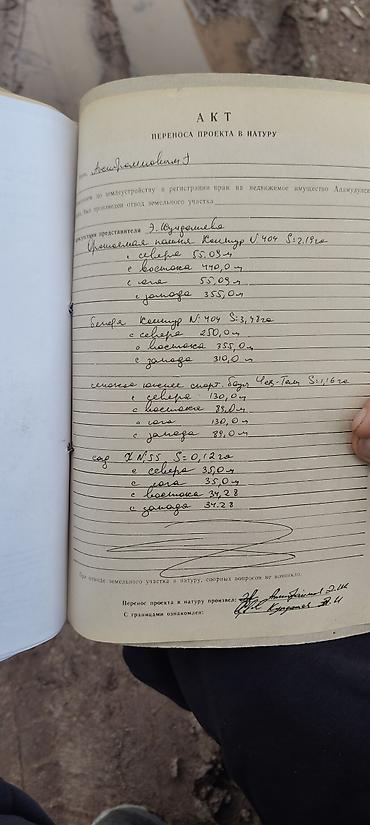 АКТ
ПЕРЕНОСА ПРОЕКТА В НАТУРУ
землеустройству и регистрации прав на недвижимое имущество
был произведен отвод земельного участка
представителя Э. Жундошева
Орошаемая пашня Контур № 404 S=2,19га
с севера 55,09м
с востока 440,0м
с юга 55,09м
с запада 355,0м
Контур № 404 S=3,48га
с севера 250,0м
с востока 355,0м
с запада 310,0м
спорт. S=1,16га
с севера 130,0м
с востока 89,0м
с юга 130,0м
с запада 89,0м
сад № 55 S=0,12га
с севера 35,0м
с юга 35,0м
с востока 34,28
с запада 34.28
При отводе земельного участка в натуру, спорных вопросов не возникло.
Перенос проекта в натуру произвел:
С границами ознакомлен: